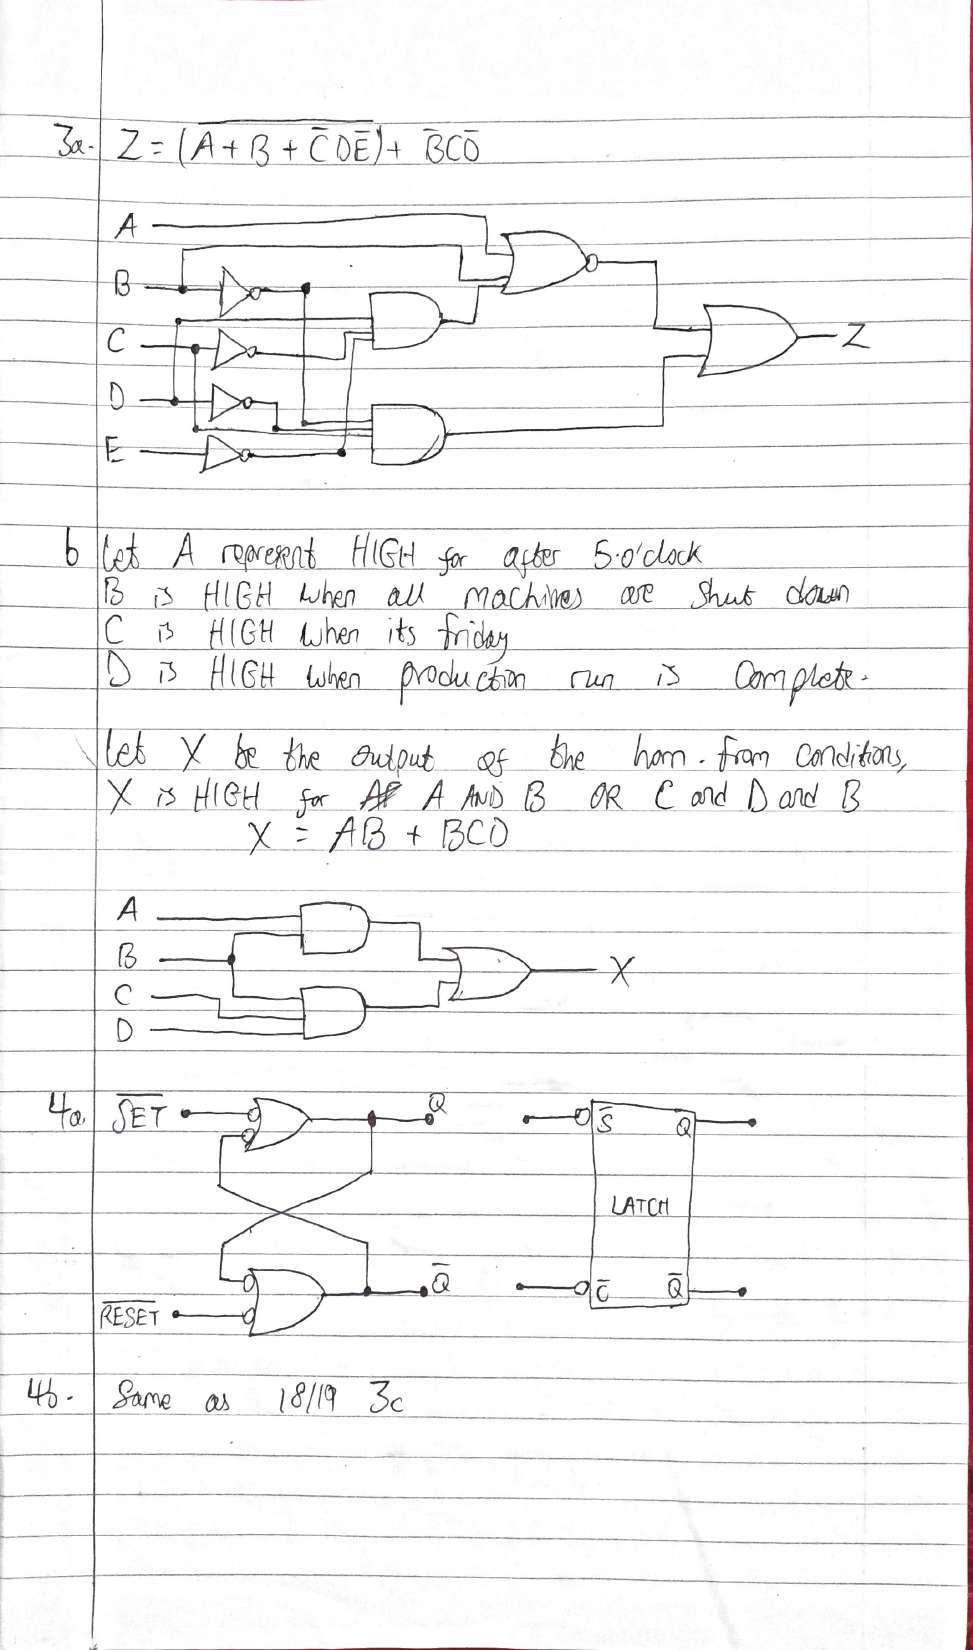 3a. Z = (A̅ ̅+̅ ̅B̅ ̅+̅ ̅C̅̅D̅E̅̅) + B̅CD̅
A
B
C
D
E
Z
b Let A represent HIGH for after 5·o'clock
B is HIGH when all machines are shut down
C is HIGH when its friday
D is HIGH when production run is complete.
Let X be the output of the horn. from conditions,
X is HIGH for A AND B OR C and D and B
X = AB + BCD
A
B
C
D
X
4a. S̅E̅T̅ Q S̅ Q
LATCH
R̅E̅S̅E̅T̅ Q̅ C̅ Q̅
4b. Same as 18/19 3c